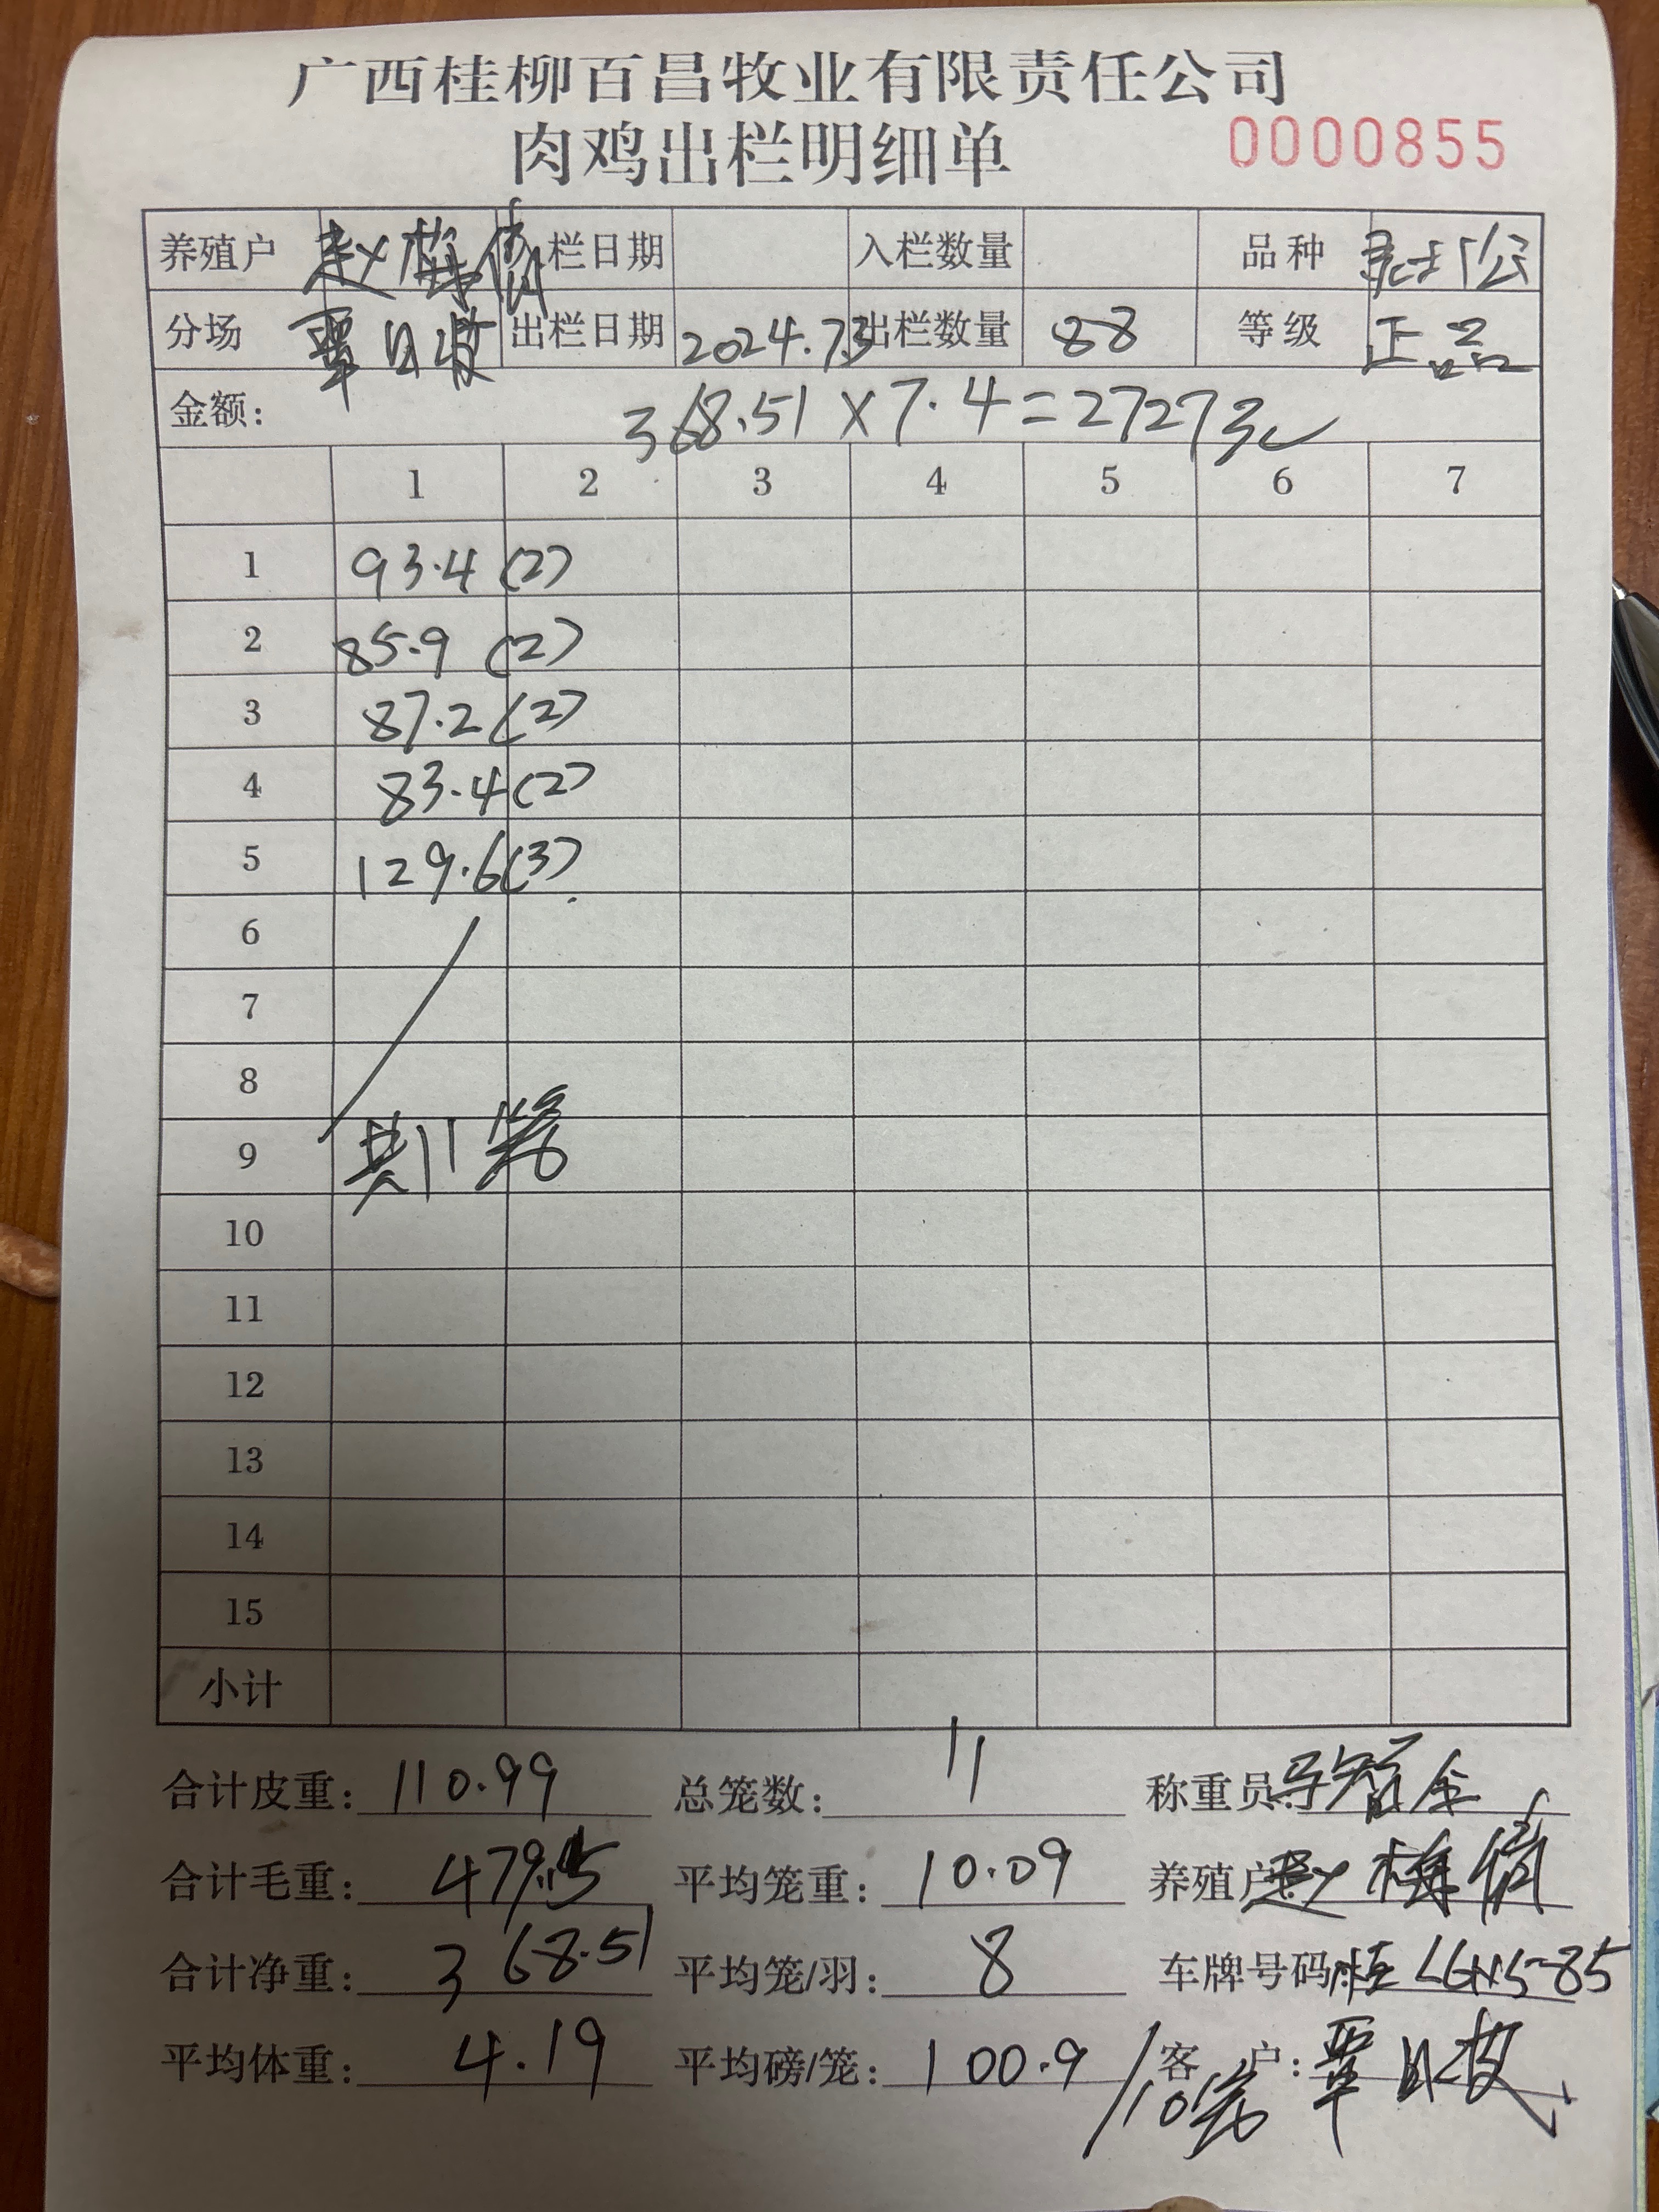 广西桂柳百昌牧业有限责任公司
肉鸡出栏明细单 0000855
养殖户 赵梅 栏日期 入栏数量 品种 公
分场 覃日 出栏日期 2024.7.3 出栏数量 88 等级 正品
金额: 368.51×7.4=2727元
1 2 3 4 5 6 7
1 93.4 (2)
2 85.9 (2)
3 87.2 (2)
4 83.4 (2)
5 129.6 (3)
6
7
8
9 共11笼
10
11
12
13
14
15
小计
合计皮重: 110.99 总笼数: 11 称重员:
合计毛重: 479.5 平均笼重: 10.09 养殖户: 赵梅
合计净重: 368.51 平均笼/羽: 8 车牌号码: 桂
平均体重: 4.19 平均磅/笼: 100.9/10笼 客户: 覃日